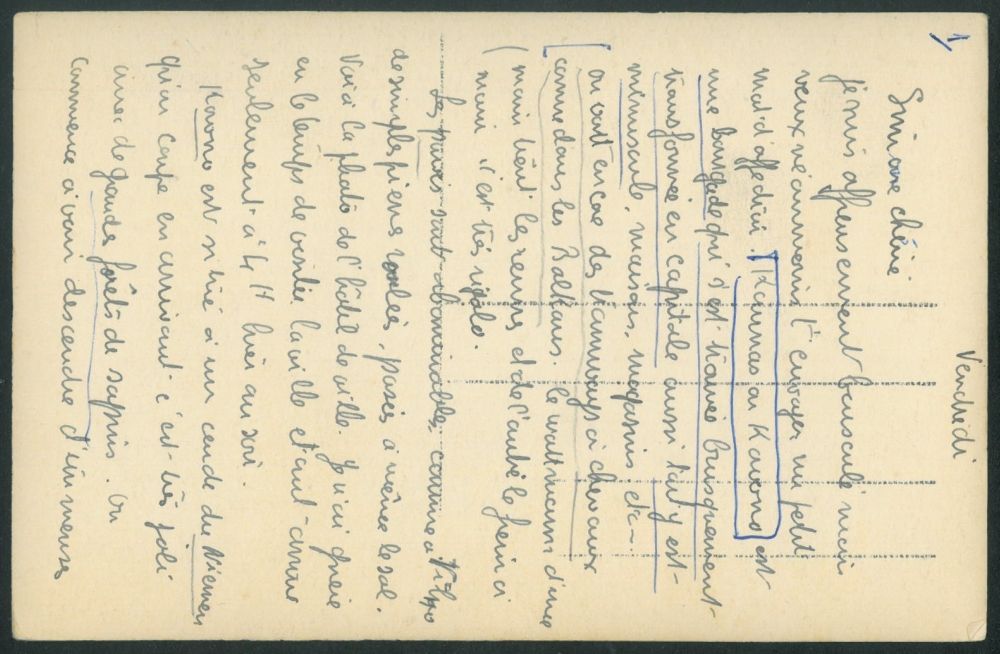 1/
Vendredi
Simone chérie
Je suis affreusement bousculé mais
veux néanmoins t'envoyer un petit
mot d'affection. Kaunas ou Kovono est
une bourgade qui s'est trouvée brusquement
transformée en capitale aussi tout y est
minuscule, maisons, magasins etc.
on voit encore des tramways à chevaux
comme dans les Balkans. le wattmann d'une
main tient les rennes et de l'autre le frein à
main. C'est très rigolo.
Les pavés sont abominables, comme à Vilno
de simples pierres posées à même le sol.
Voici la photo de l'hôtel de ville. Je n'ai guère
eu le temps de visiter la ville étant arrivé
seulement à 4 H hier au soir.
Kovono est situé à un coude du Niemen
qu'on coupe en arrivant c'est très joli
avec de grandes forêts de sapins. On
commence à voir descendre d'immenses